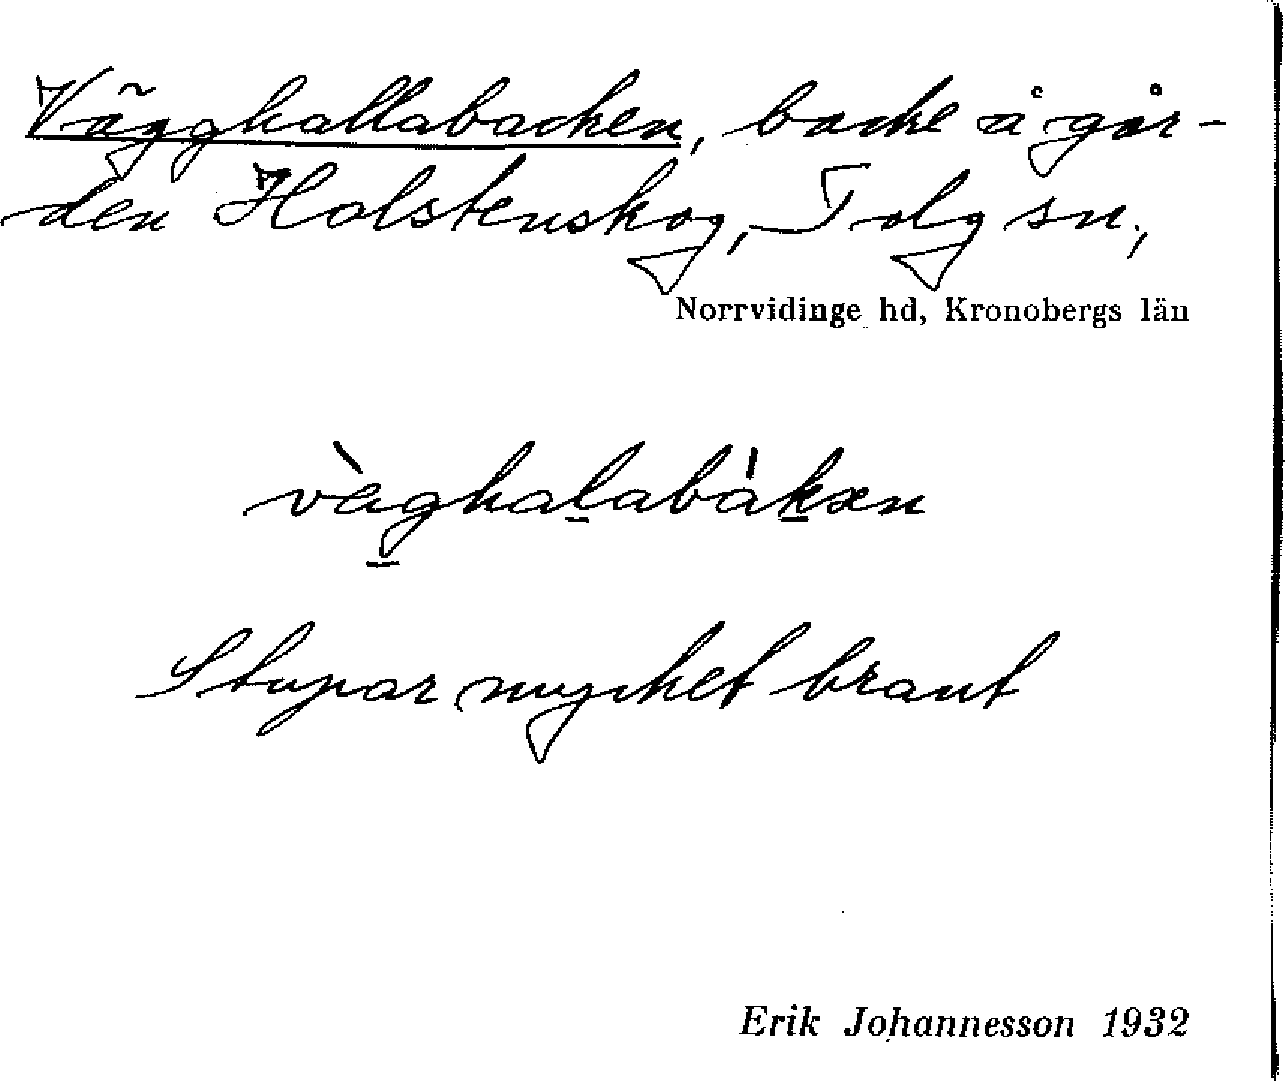 Vägghallabacken, backe å går-
den Holstenskog, Tolg sn,
Norrvidinge hd, Kronobergs län
vàghalabàkən
Stupar mycket brant
Erik Johannesson 1932